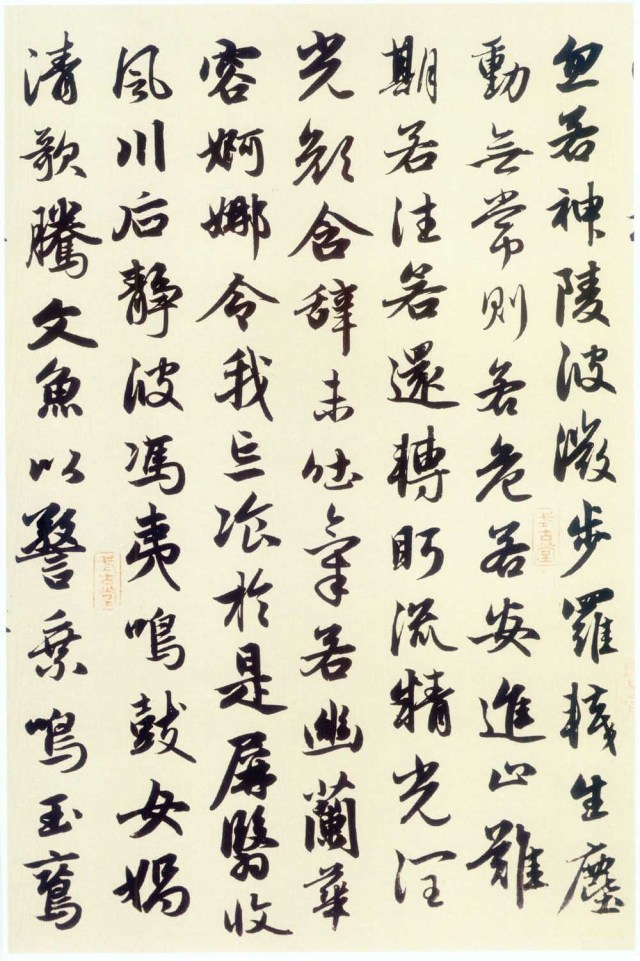 忽若神陵波微步羅韈生塵
動無常則若危若安進止難
期若往若還轉眄流精光潤
光顏含辞未吐氣若幽蘭華
容婀娜令我忘飡於是屏翳收
風川后靜波馮夷鳴鼓女媧
清歌騰文魚以警乗鳴玉鸞